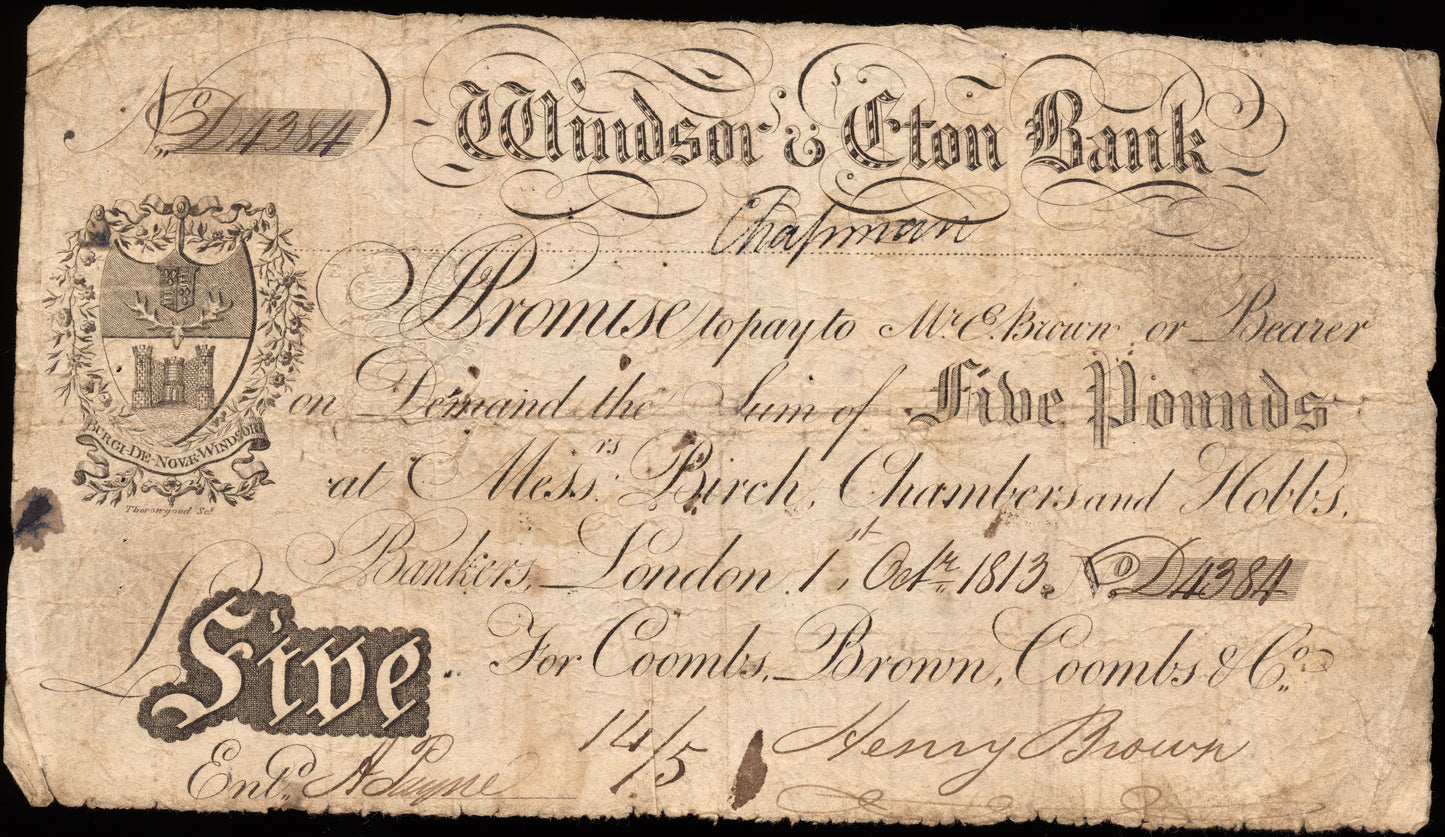 No. D4384
Windsor & Eton Bank
Chapman
I Promise to pay to Mr. E. Brown or Bearer
on Demand the Sum of Five Pounds
at Messrs. Birch, Chambers and Hobbs,
Bankers, London, 1st, Octr. 1813. No. D4384
BURGI-DE-NOVE-WINDSOR
Thorowgood Sct.
£ Five . For Coombs, Brown, Coombs & Co.
14/5 Henry Brown
Entd. A Payne